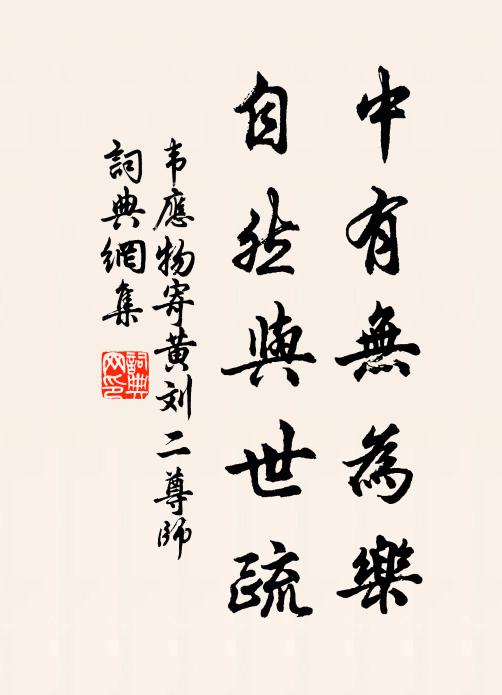 中有無為樂
自然與世疏
韦應物寄黄刘二尊師
詞典網集
詞典
网印